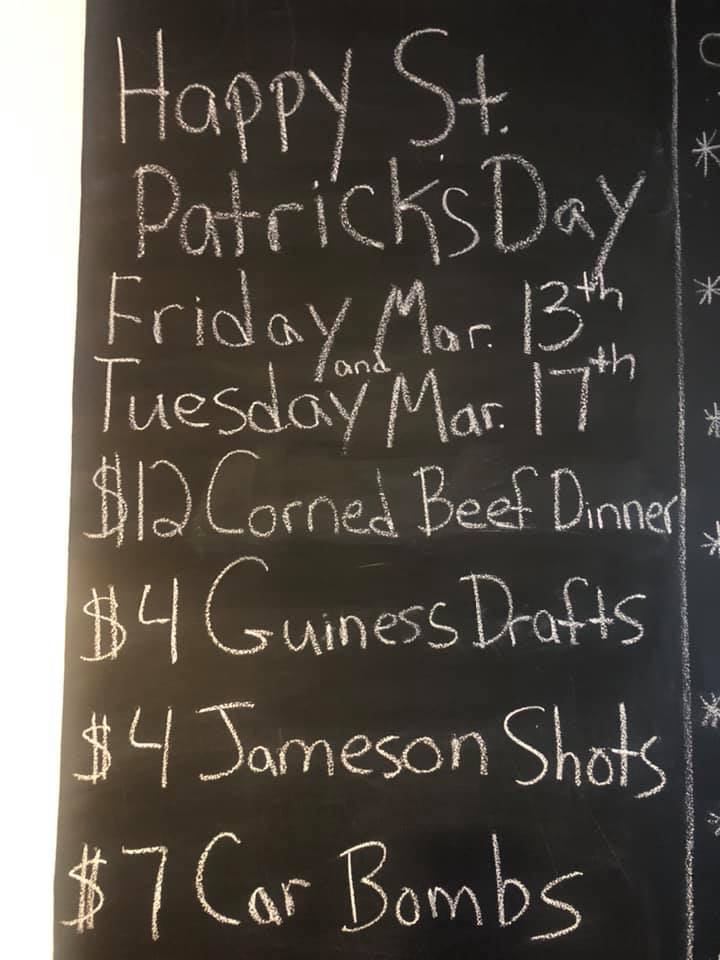 Happy St.
Patrick's Day
Friday Mar. 13th
and
Tuesday Mar. 17th
$12 Corned Beef Dinner
$4 Guiness Drafts
$4 Jameson Shots
$7 Car Bombs